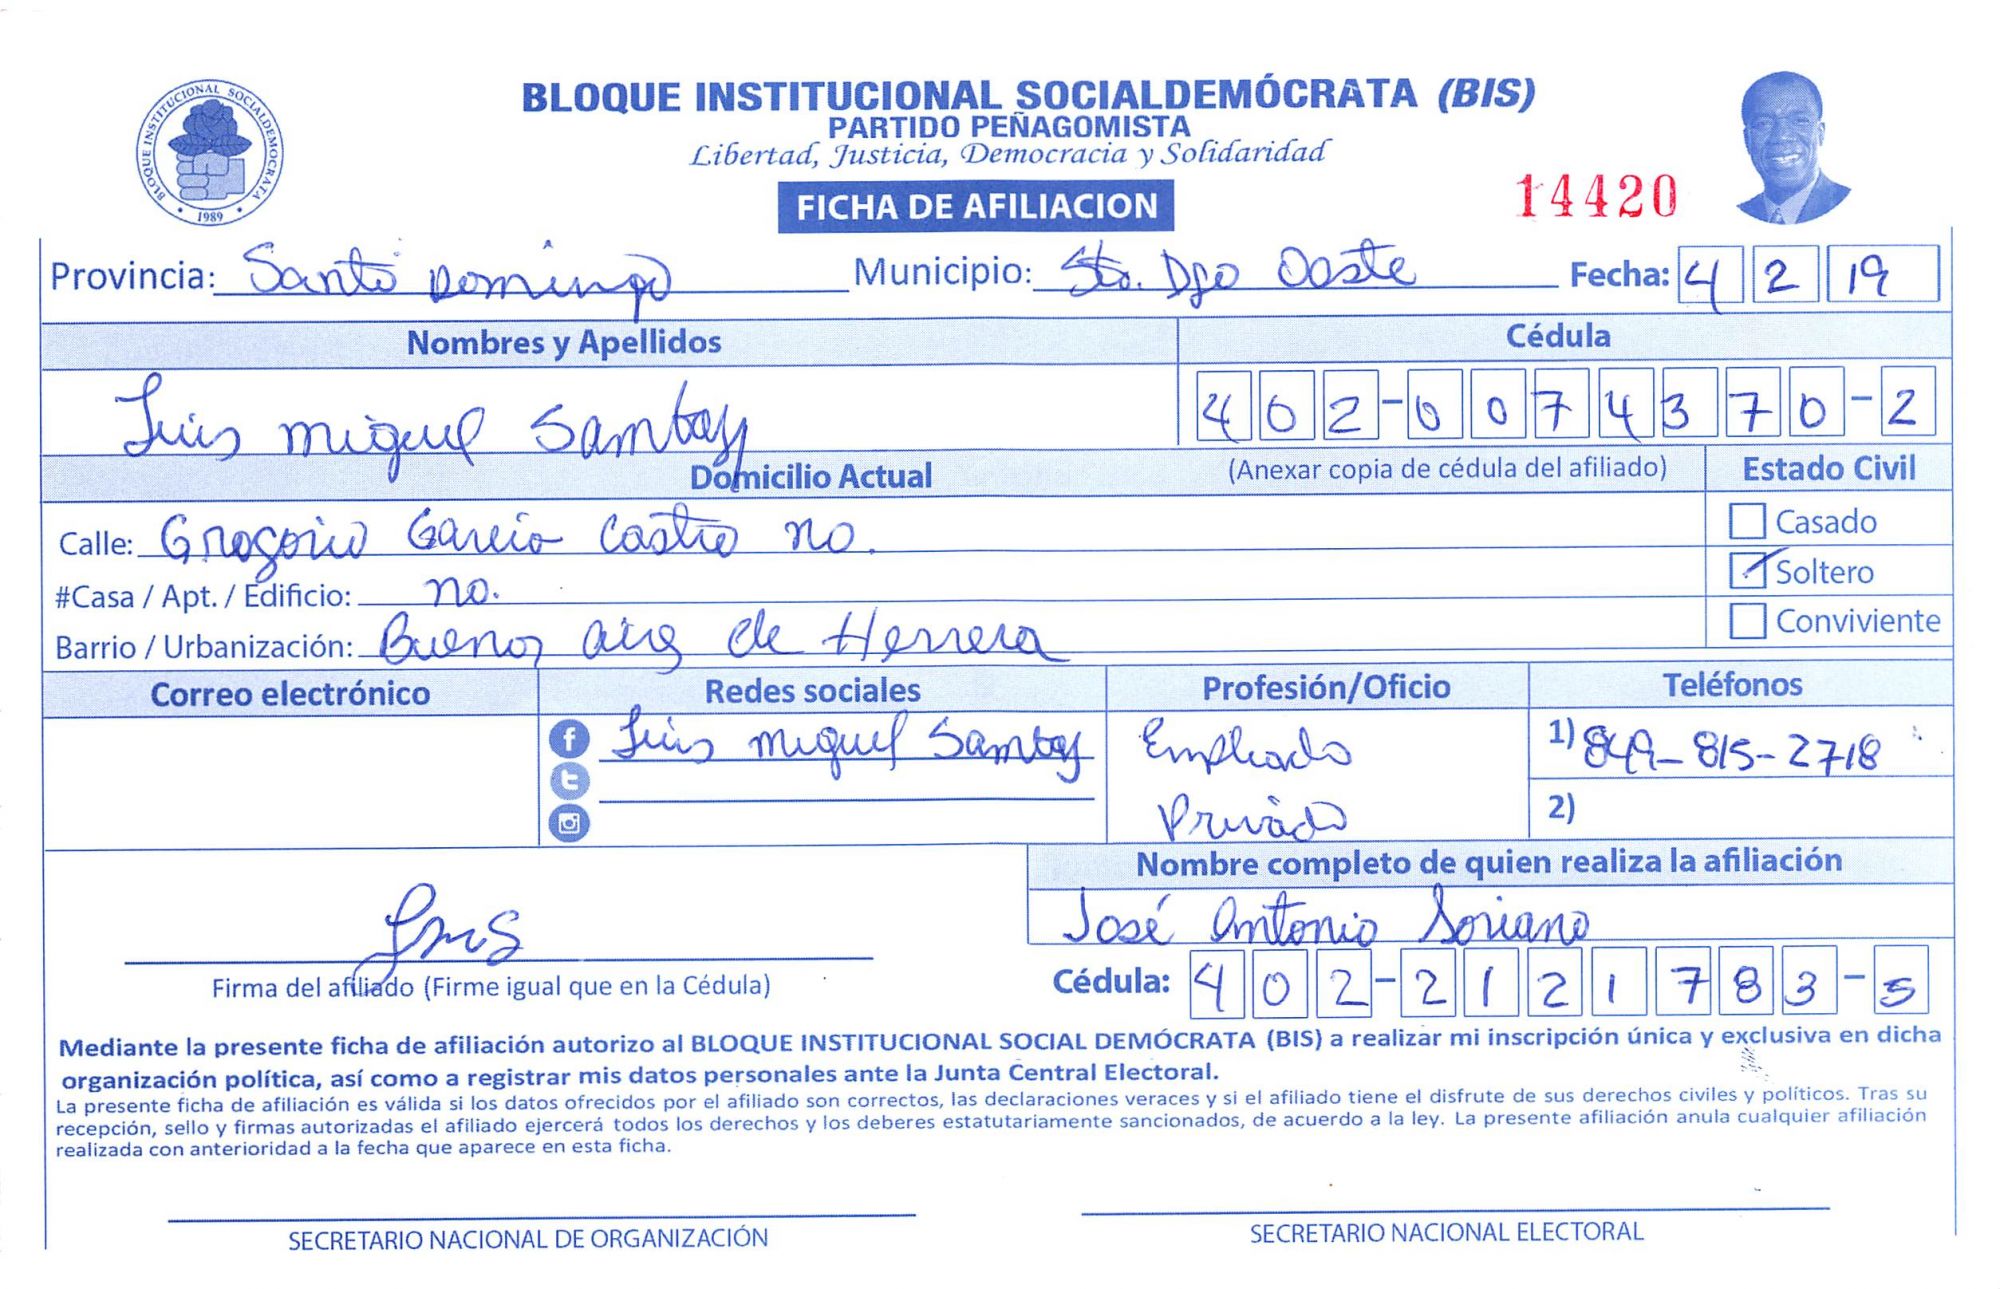 BLOQUE INSTITUCIONAL SOCIALDEMOCRATA
1989
BLOQUE INSTITUCIONAL SOCIALDEMÓCRATA (BIS)
PARTIDO PEÑAGOMISTA
Libertad, Justicia, Democracia y Solidaridad
FICHA DE AFILIACION
14420
Provincia: Santo Domingo Municipio: Sto. Dgo Oeste Fecha: 4 2 19
Nombres y Apellidos Cédula
Luis Miguel 402-0074370-2
Domicilio Actual (Anexar copia de cédula del afiliado) Estado Civil
Calle: Gregorio Garcia Castro no. Casado
#Casa / Apt. / Edificio: no. Soltero
Barrio / Urbanización: Buenos Aires de Herrera Conviviente
Correo electrónico Redes sociales Profesión/Oficio Teléfonos
Luis Miguel Empleado 1) 849-815-2718
Privado 2)
Nombre completo de quien realiza la afiliación
José Antonio Soriano
Luis
Firma del afiliado (Firme igual que en la Cédula) Cédula: 402-2121783-5
Mediante la presente ficha de afiliación autorizo al BLOQUE INSTITUCIONAL SOCIAL DEMÓCRATA (BIS) a realizar mi inscripción única y exclusiva en dicha
organización política, así como a registrar mis datos personales ante la Junta Central Electoral.
La presente ficha de afiliación es válida si los datos ofrecidos por el afiliado son correctos, las declaraciones veraces y si el afiliado tiene el disfrute de sus derechos civiles y políticos. Tras su
recepción, sello y firmas autorizadas el afiliado ejercerá todos los derechos y los deberes estatutariamente sancionados, de acuerdo a la ley. La presente afiliación anula cualquier afiliación
realizada con anterioridad a la fecha que aparece en esta ficha.
SECRETARIO NACIONAL DE ORGANIZACIÓN SECRETARIO NACIONAL ELECTORAL